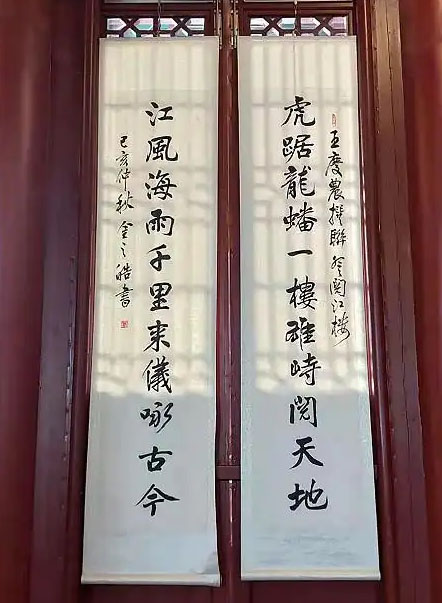 王慶農撰聯登閱江樓
虎踞龍蟠一樓雄峙閱天地
江風海雨千里来儀咏古今
己亥仲秋金之皓書